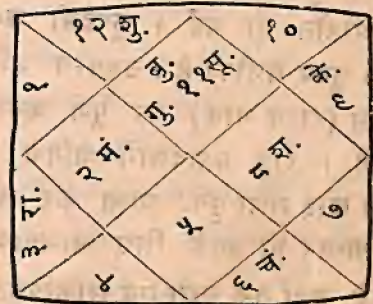 १२ शु.
१०
बु. ११ सू.
गु.
१
के. ९
२ मं.
८ श.
३ रा.
५
७
४
६ चं.